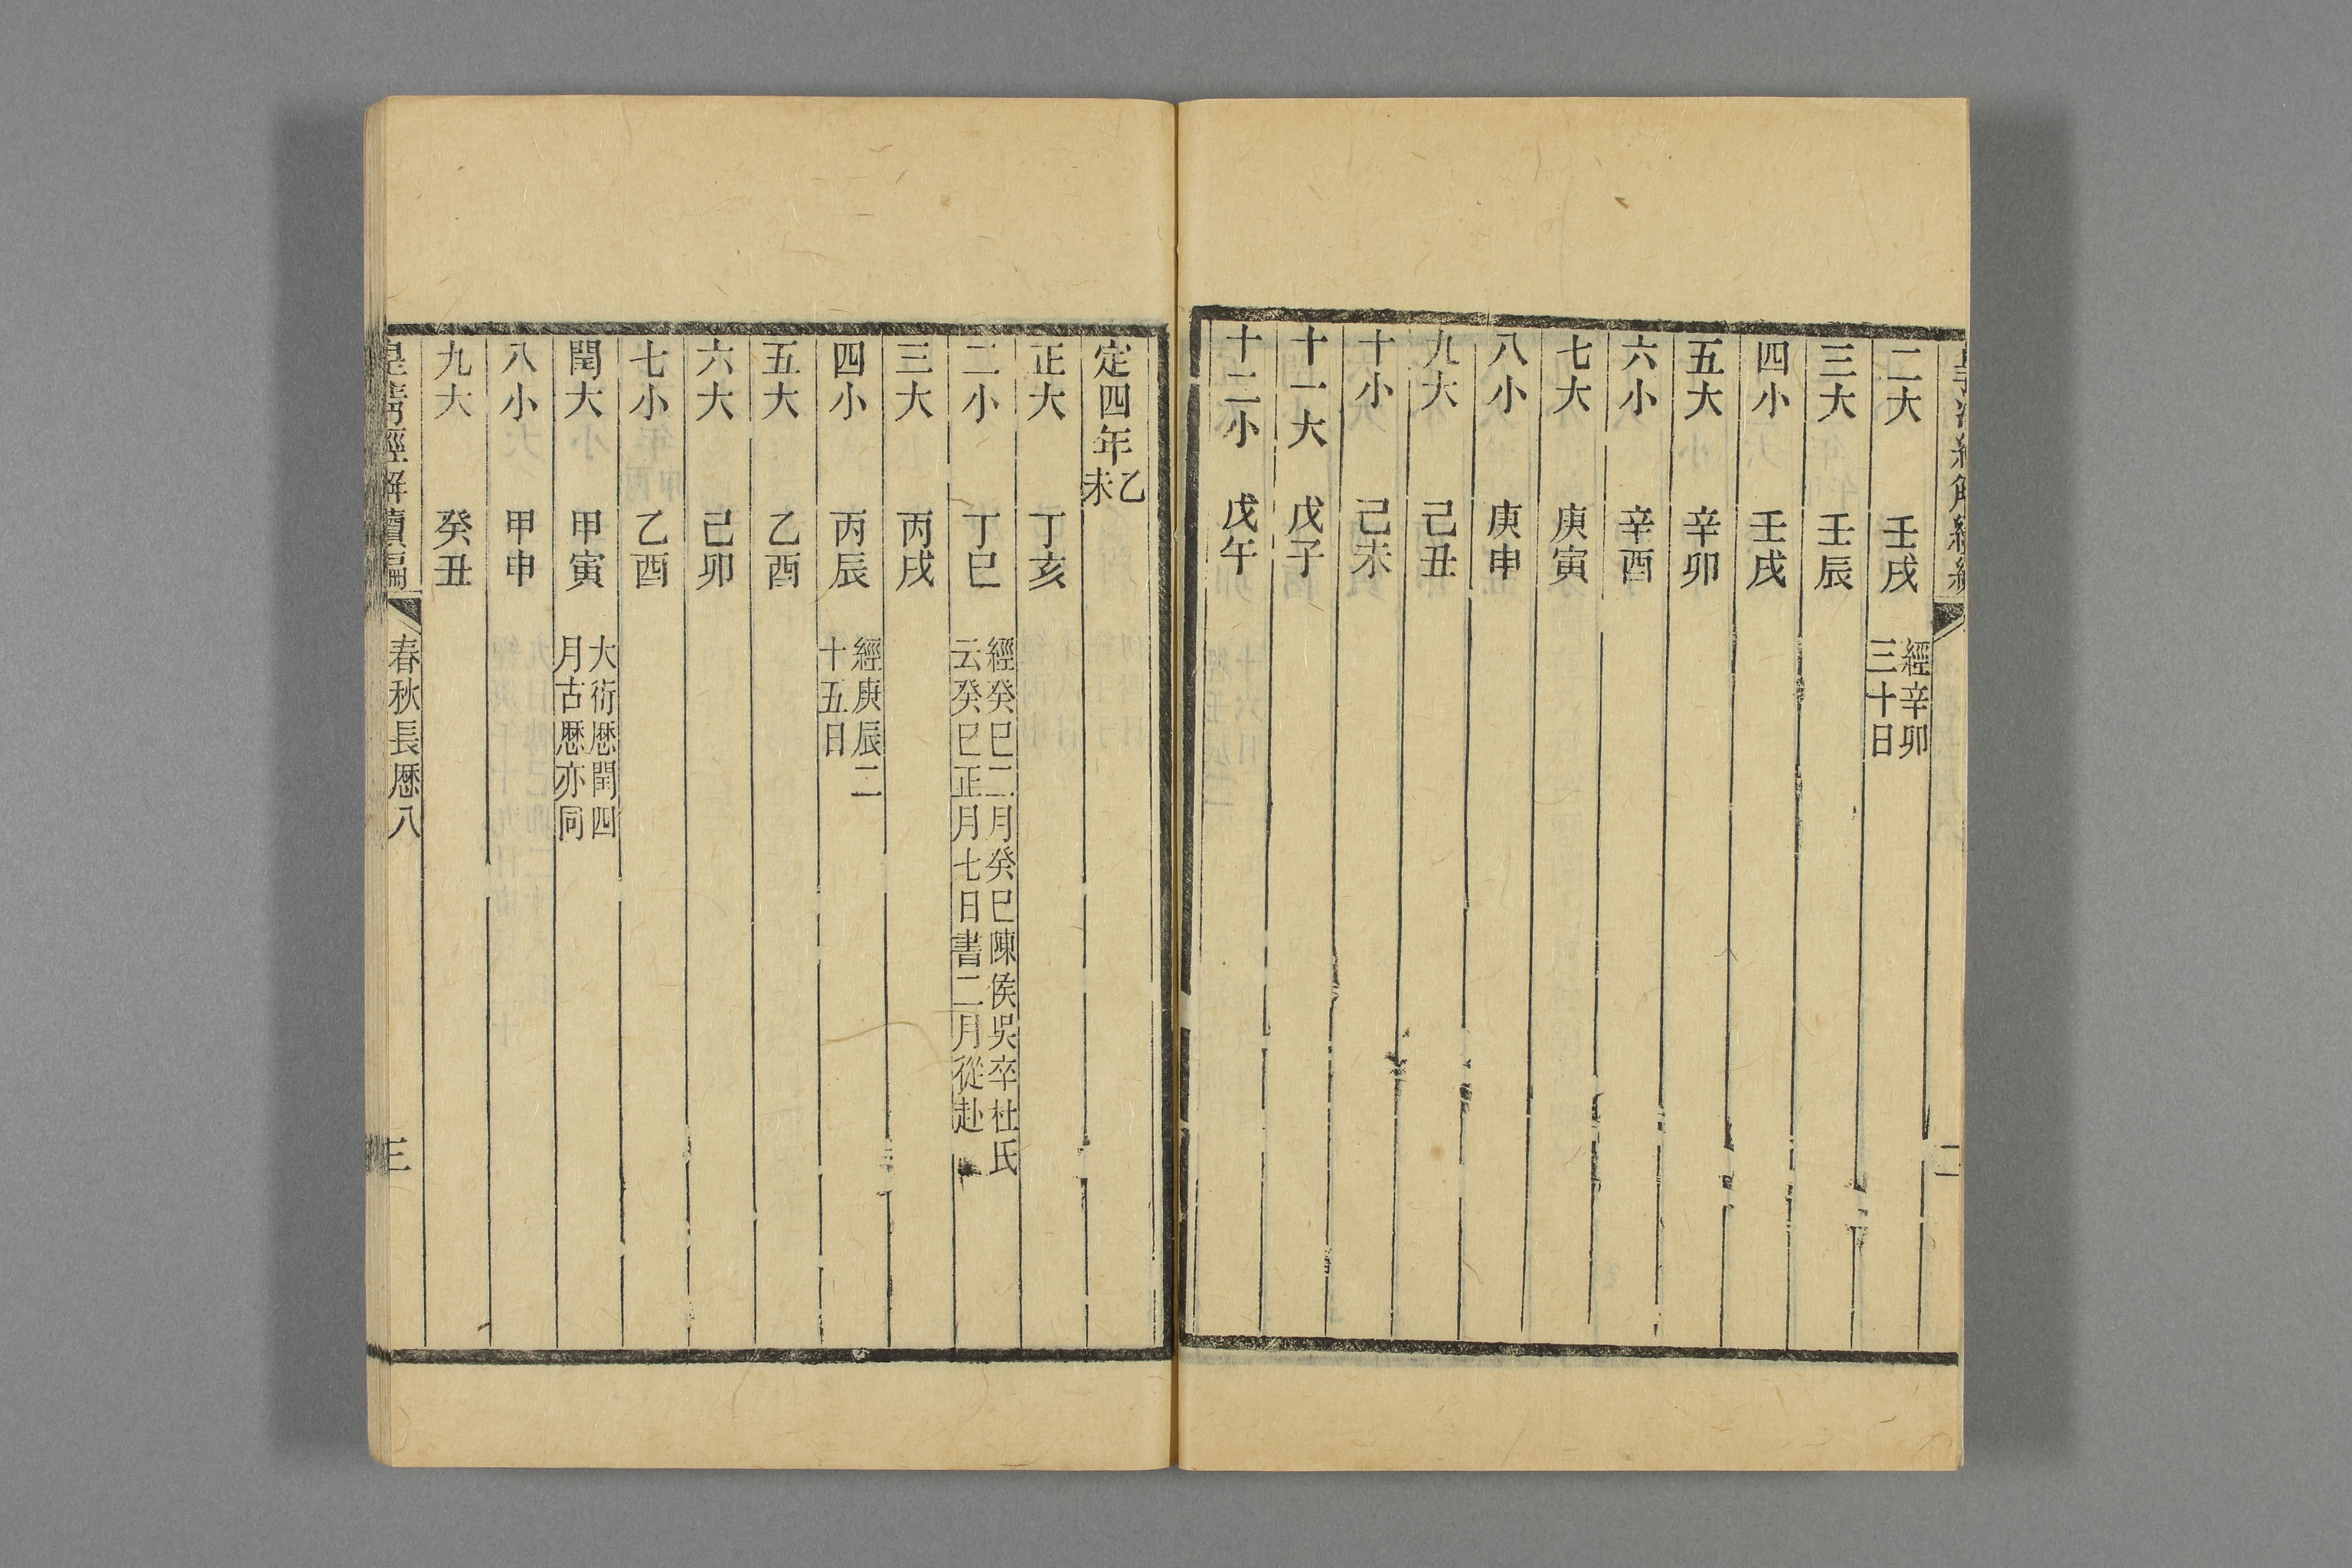 二大 壬戌 經辛卯
三十日
三大 壬辰
四小 壬戌
五大 辛卯
六小 辛酉
七大 庚寅
八小 庚申
九大 己丑
十小 己未
十一大 戊子
十二小 戊午
定四年乙
未
正大 丁亥
二小 丁巳 經癸巳二月癸巳陳侯吳卒杜氏
云癸巳正月七日書二月從赴
三大 丙戌
四小 丙辰 經庚辰二
十五日
五大 乙酉
六大 己卯
七小 乙酉
閏大 甲寅 大衍厯閏四
月古厯亦同
八小 甲申
九大 癸丑
皇淸經解續編 春秋長厯八 三